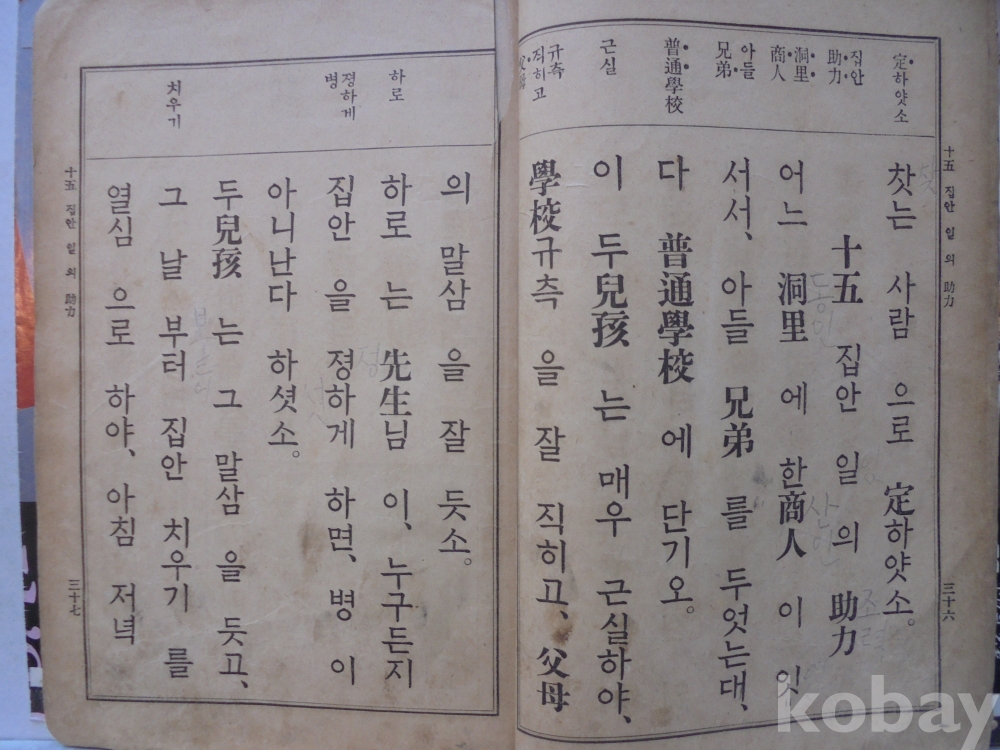 定하얏소
집안
助力
洞里
商人
아들
兄弟
普通學校
근실
규측
직히고
찻는 사람 으로 定하얏소。
十五 집안 일의 助力
어느 洞里 에 한商人 이 잇
서서、아들 兄弟 를 두엇는대、
다 普通學校 에 단기오。
이 두兒孩 는 매우 근실하야、
學校규측 을 잘 직히고、父母
十五 집안 일의 助力
三十六
하로
졍하게
병
치우기
의 말삼 을 잘 듯소。
하로 는 先生님 이、누구든지
집안 을 졍하게 하면、병 이
아니난다 하셧소。
두兒孩 는 그 말삼 을 듯고、
그 날 부터 집안 치우기 를
열심 으로 하야、아침 저녁
十五 집안 일의 助力
三十七
동리
상인
조력
정
kobay